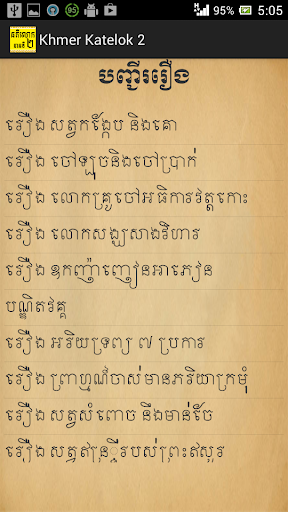 95
95%
5:05
គតិលោក
ភាគទី ២
Khmer Katelok 2
បញ្ជីររឿង
រឿង សត្វកង្កែប និងគោ
រឿង ចៅឡុចនិងចៅប្រាក់
រឿង លោកគ្រូចៅអធិការវត្តកោះ
រឿង លោកសង្ឃសាងវិហារ
រឿង ឧកញ៉ាញៀនអាភៀន
បណ្ឌិតវគ្គ
រឿង អរិយទ្រព្យ ៧ ប្រការ
រឿង ព្រាហ្មណ៍ចាស់មានភរិយាក្រមុំ
រឿង សត្វសំពោច នឹងមាន់ចែ
រឿង សត្វឥន្ទ្រីរបស់ព្រះឥសូរ